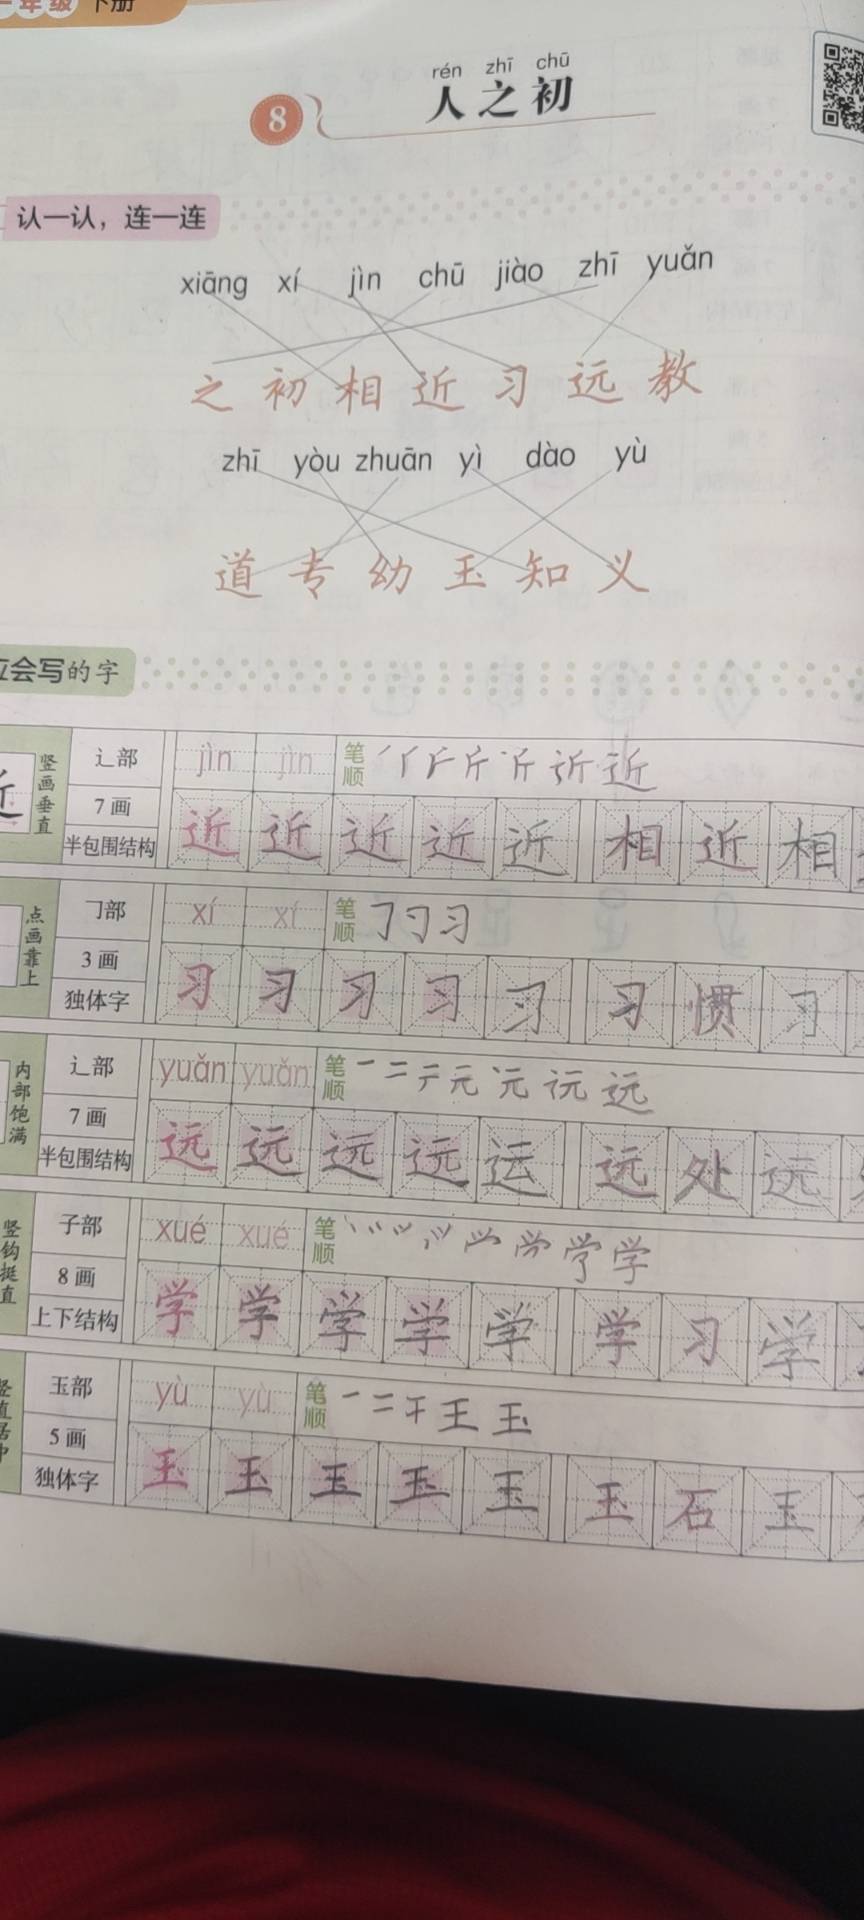 一年级 下册
rén zhī chū
8 人之初
认一认，连一连
xiāng xí jìn chū jiào zhī yuǎn
之 初 相 近 习 远 教
zhī yòu zhuān yì dào yù
道 专 幼 玉 知 义
会写的字
近 竖画垂直 辶部 jìn jìn 笔顺
7画
半包围结构 近 近 近 近 近 相 近 相
点画靠上 ㇆部 xí xí 笔顺
3画
独体字 习 习 习 习 习 习 惯 习
内部饱满 辶部 yuǎn yuǎn 笔顺 一 二 元 远
7画
半包围结构 远 远 远 远 运 远 处 远
竖钩挺直 子部 xué xué 笔顺 学
8画
上下结构 学 学 学 学 学 学 习 学
竖直居中 玉部 yù yù 笔顺 一 二 干 王 玉
5画
独体字 玉 玉 玉 玉 玉 玉 石 玉